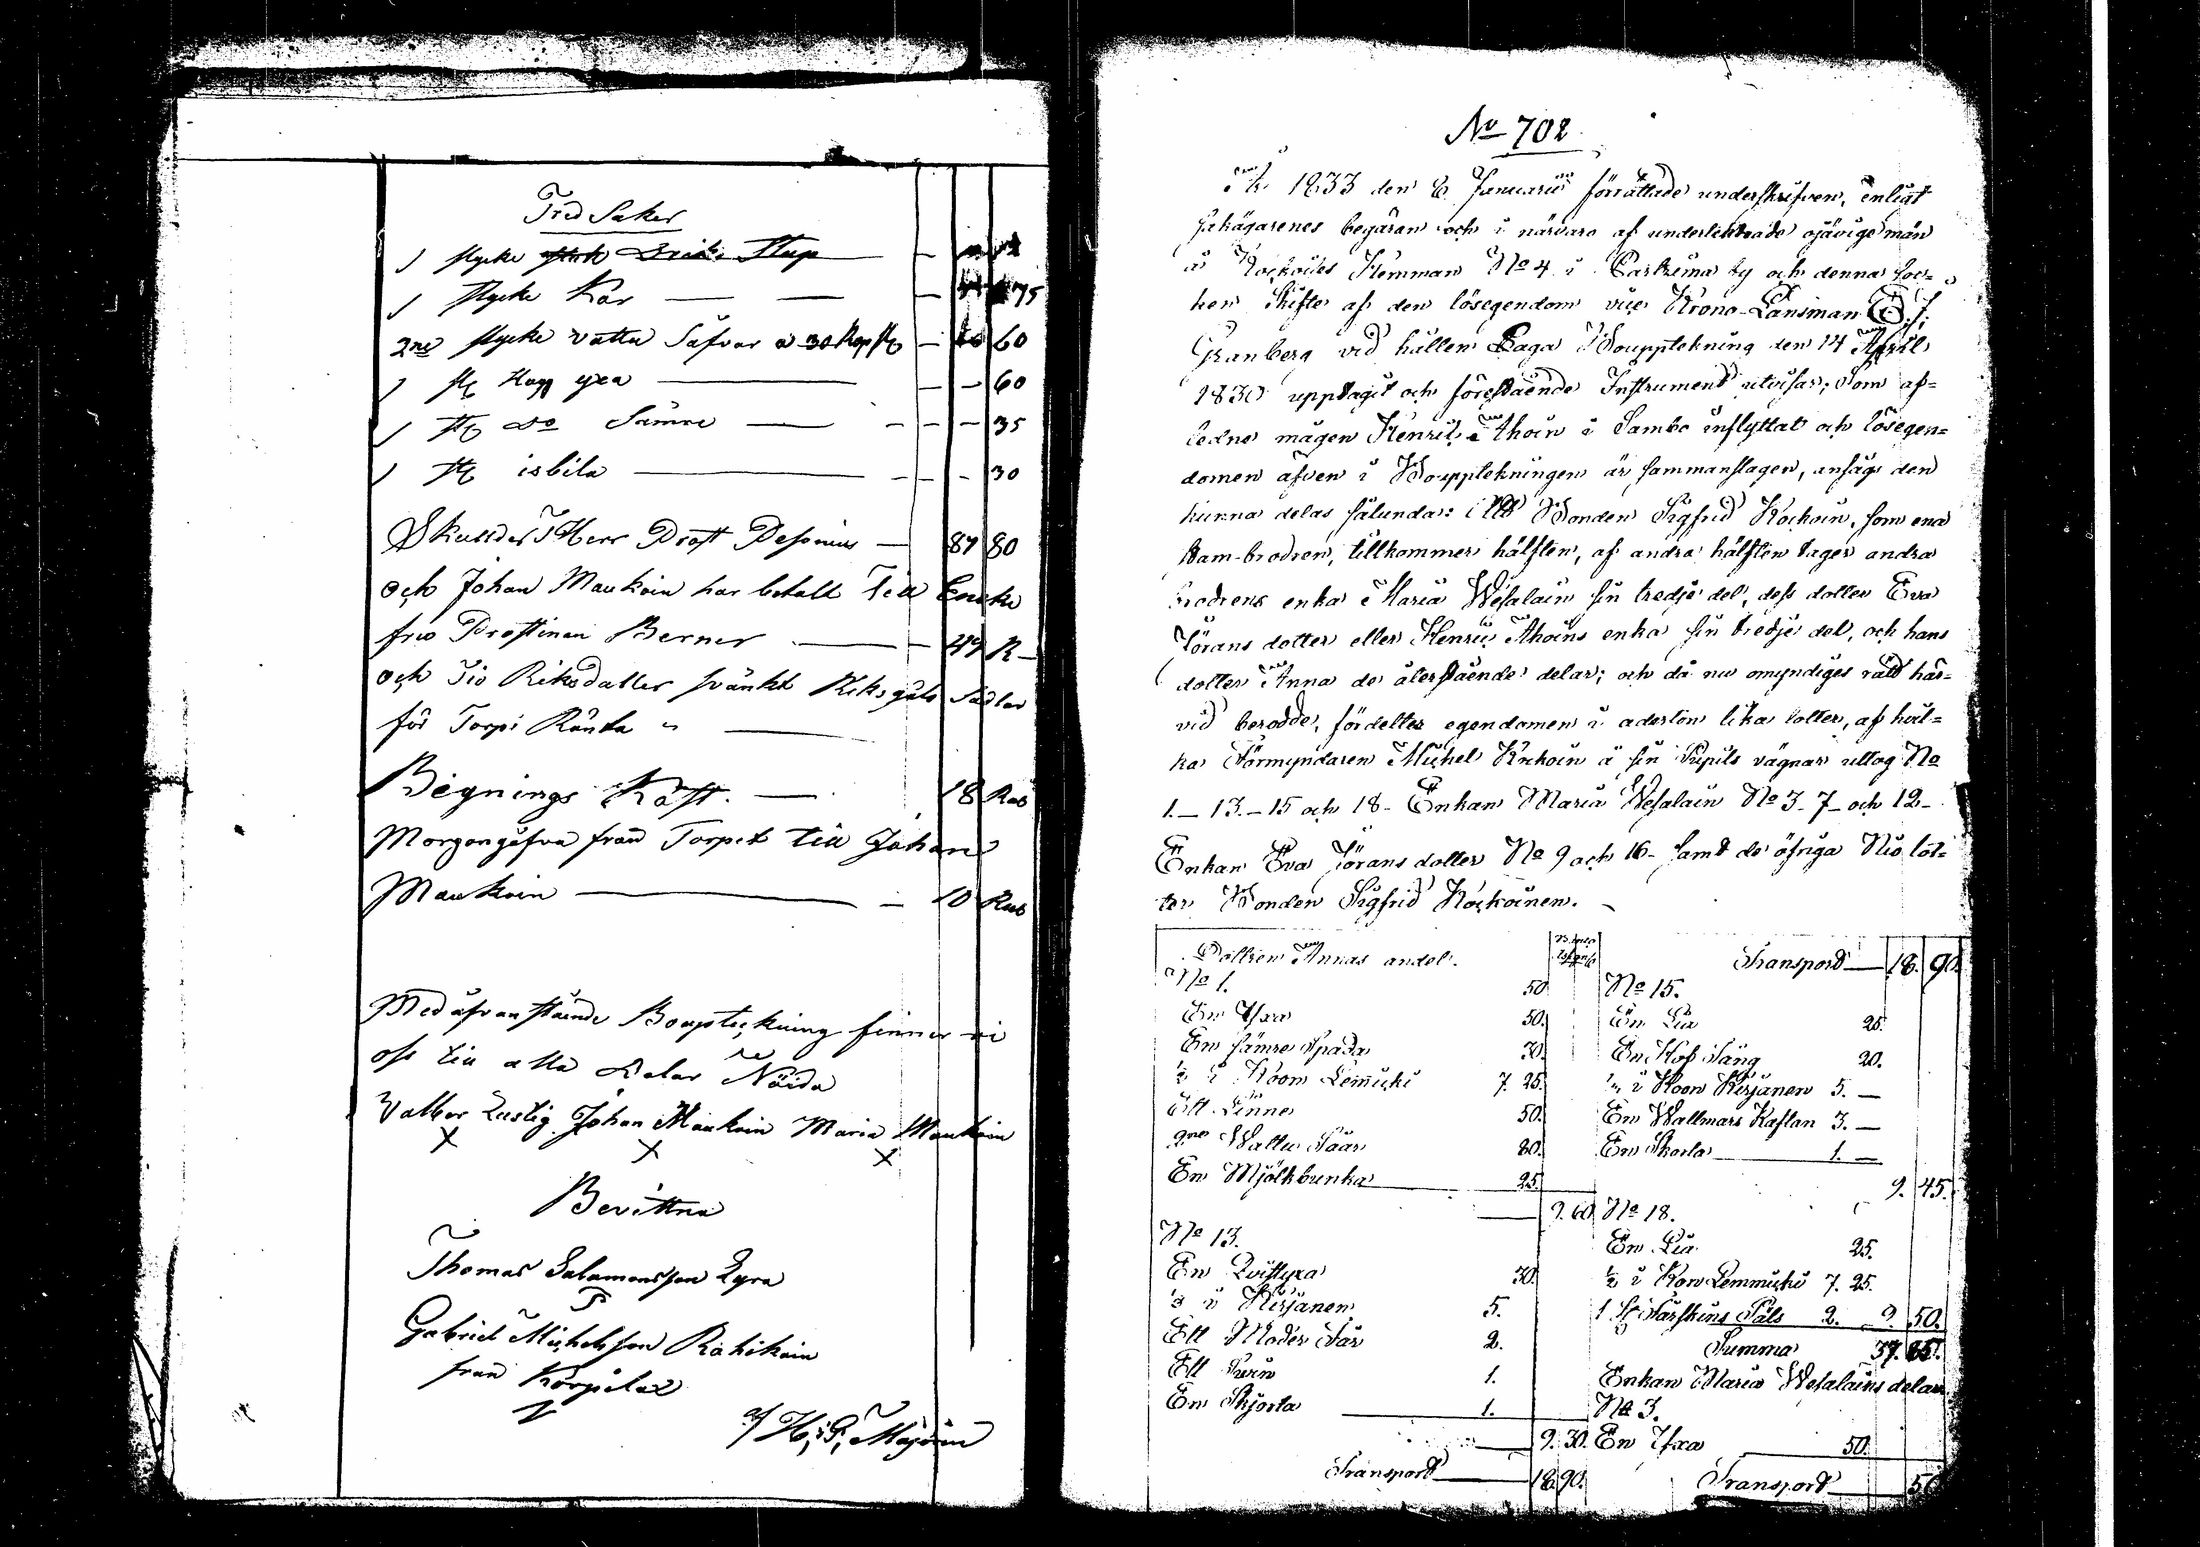 Träd Saker
1 stycke Drick Stop
1 stycke Kar — — 75
2ne stycke vattu Såfvar a 30 Kop st 60
1 st Hugg yxa — 60
1 st do Sämre — 35
1 st isbila — 30
Skulder T Herr Prost — 87 80
och Johan Maukoin har betalt Till Encke
fru Prostinan Berner — 49 R
och Tio Riksdaller svänskt Riksgäls Sädlar
för Torpi Ränta
Begnings Kåst. — 18 Rub
Morgongåfva från Torpet till Johan
Maukoin — 10 Rub
Med åfvanstående Bouptekning finner vi
oss till alla Delar Nöida
Valbor Lustig Johan Maukoin Maria Maukoin
X X X
Bevittna
Thomas Salamonsson Lyra
Gabriel Michelsson Rahikain
från Korpilax
af H, P, Majoin
No 702
År 1833 den 8 Januarii förrättade underskrifven, enligt
sakägarenes begäran och i närvaro af undertecknade ojävige män
å Kockois Hemman No 4 i by och denna soc=
ken Skifte af den lösegendom vice Krono-Länsman
Granberg vid hållen Laga Bouppteckning den 14 April
1830 upptagit och föreståënde Instrument utvisar; Som af=
ledne mågen Henrik Ahoin i Sambo inflyttat och lösegen=
domen äfven i Bouppteckningen är sammanslagen, ansågs den
kunna delas sålunda: Att Bonden Sigfrid Kockoin, som ena
stam-brodren, tillkommer hälften, af andra hälften tager andra
brodrens enka Maria Wesalain sin tredje del, dess dotter Eva
Jörans dotter eller Henric Ahoins enka sin tredje del, och hans
dotter Anna de återstående delar; och då nu omyndiges rätt här=
vid berodde, fördeltes egendomen i aderton lika lotter, af hvil=
ka Förmyndaren Michel Kockoin å sin Pupils vägnar uttog No
1. — 13. — 15 och 18 — Enkan Maria Wesalain No 3 — 7 — och 12 —
Enkan Eva Jörans dotter No 9 och 16 — samt de öfriga Nio lot=
ter Bonden Sigfrid Kockoinen. —
Dottren Annas andel.
No 1. 50
En Yxa 50.
En sämre Spada 30.
½ i Koon Lemmicki 7. 25.
Ett Linne 50.
2ne Wattu Såar 80.
En Mjölkbunka 25.
9. 60
No 13.
En Qvistyxa 30.
i Kirjänen 5.
Ett Moder Får 2.
Ett Svin 1.
En Skjorta 1.
9. 30.
Transport — 18. 90.
Transport — 18. 90.
No 15.
En Lia 25.
En Hof Tång 20.
½ i Koon Kirjänen 5. —
En Wallmars Kaftan 3. —
En Skorta 1. —
9. 45.
No 18.
En Lia 25.
½ i Kon Lemmicki 7. 25.
1 St Fårskins Päls 2. 9. 50.
Summa 37. 85.
Enkan Maria Wesalains delar
No 3.
En Yxa 50.
Transport — 50